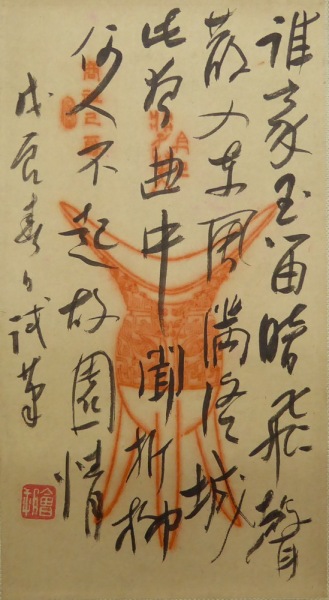 誰家玉笛暗飛聲
散入東風滿洛城
此夜曲中聞折柳
何人不起故園情
戊辰春日試筆